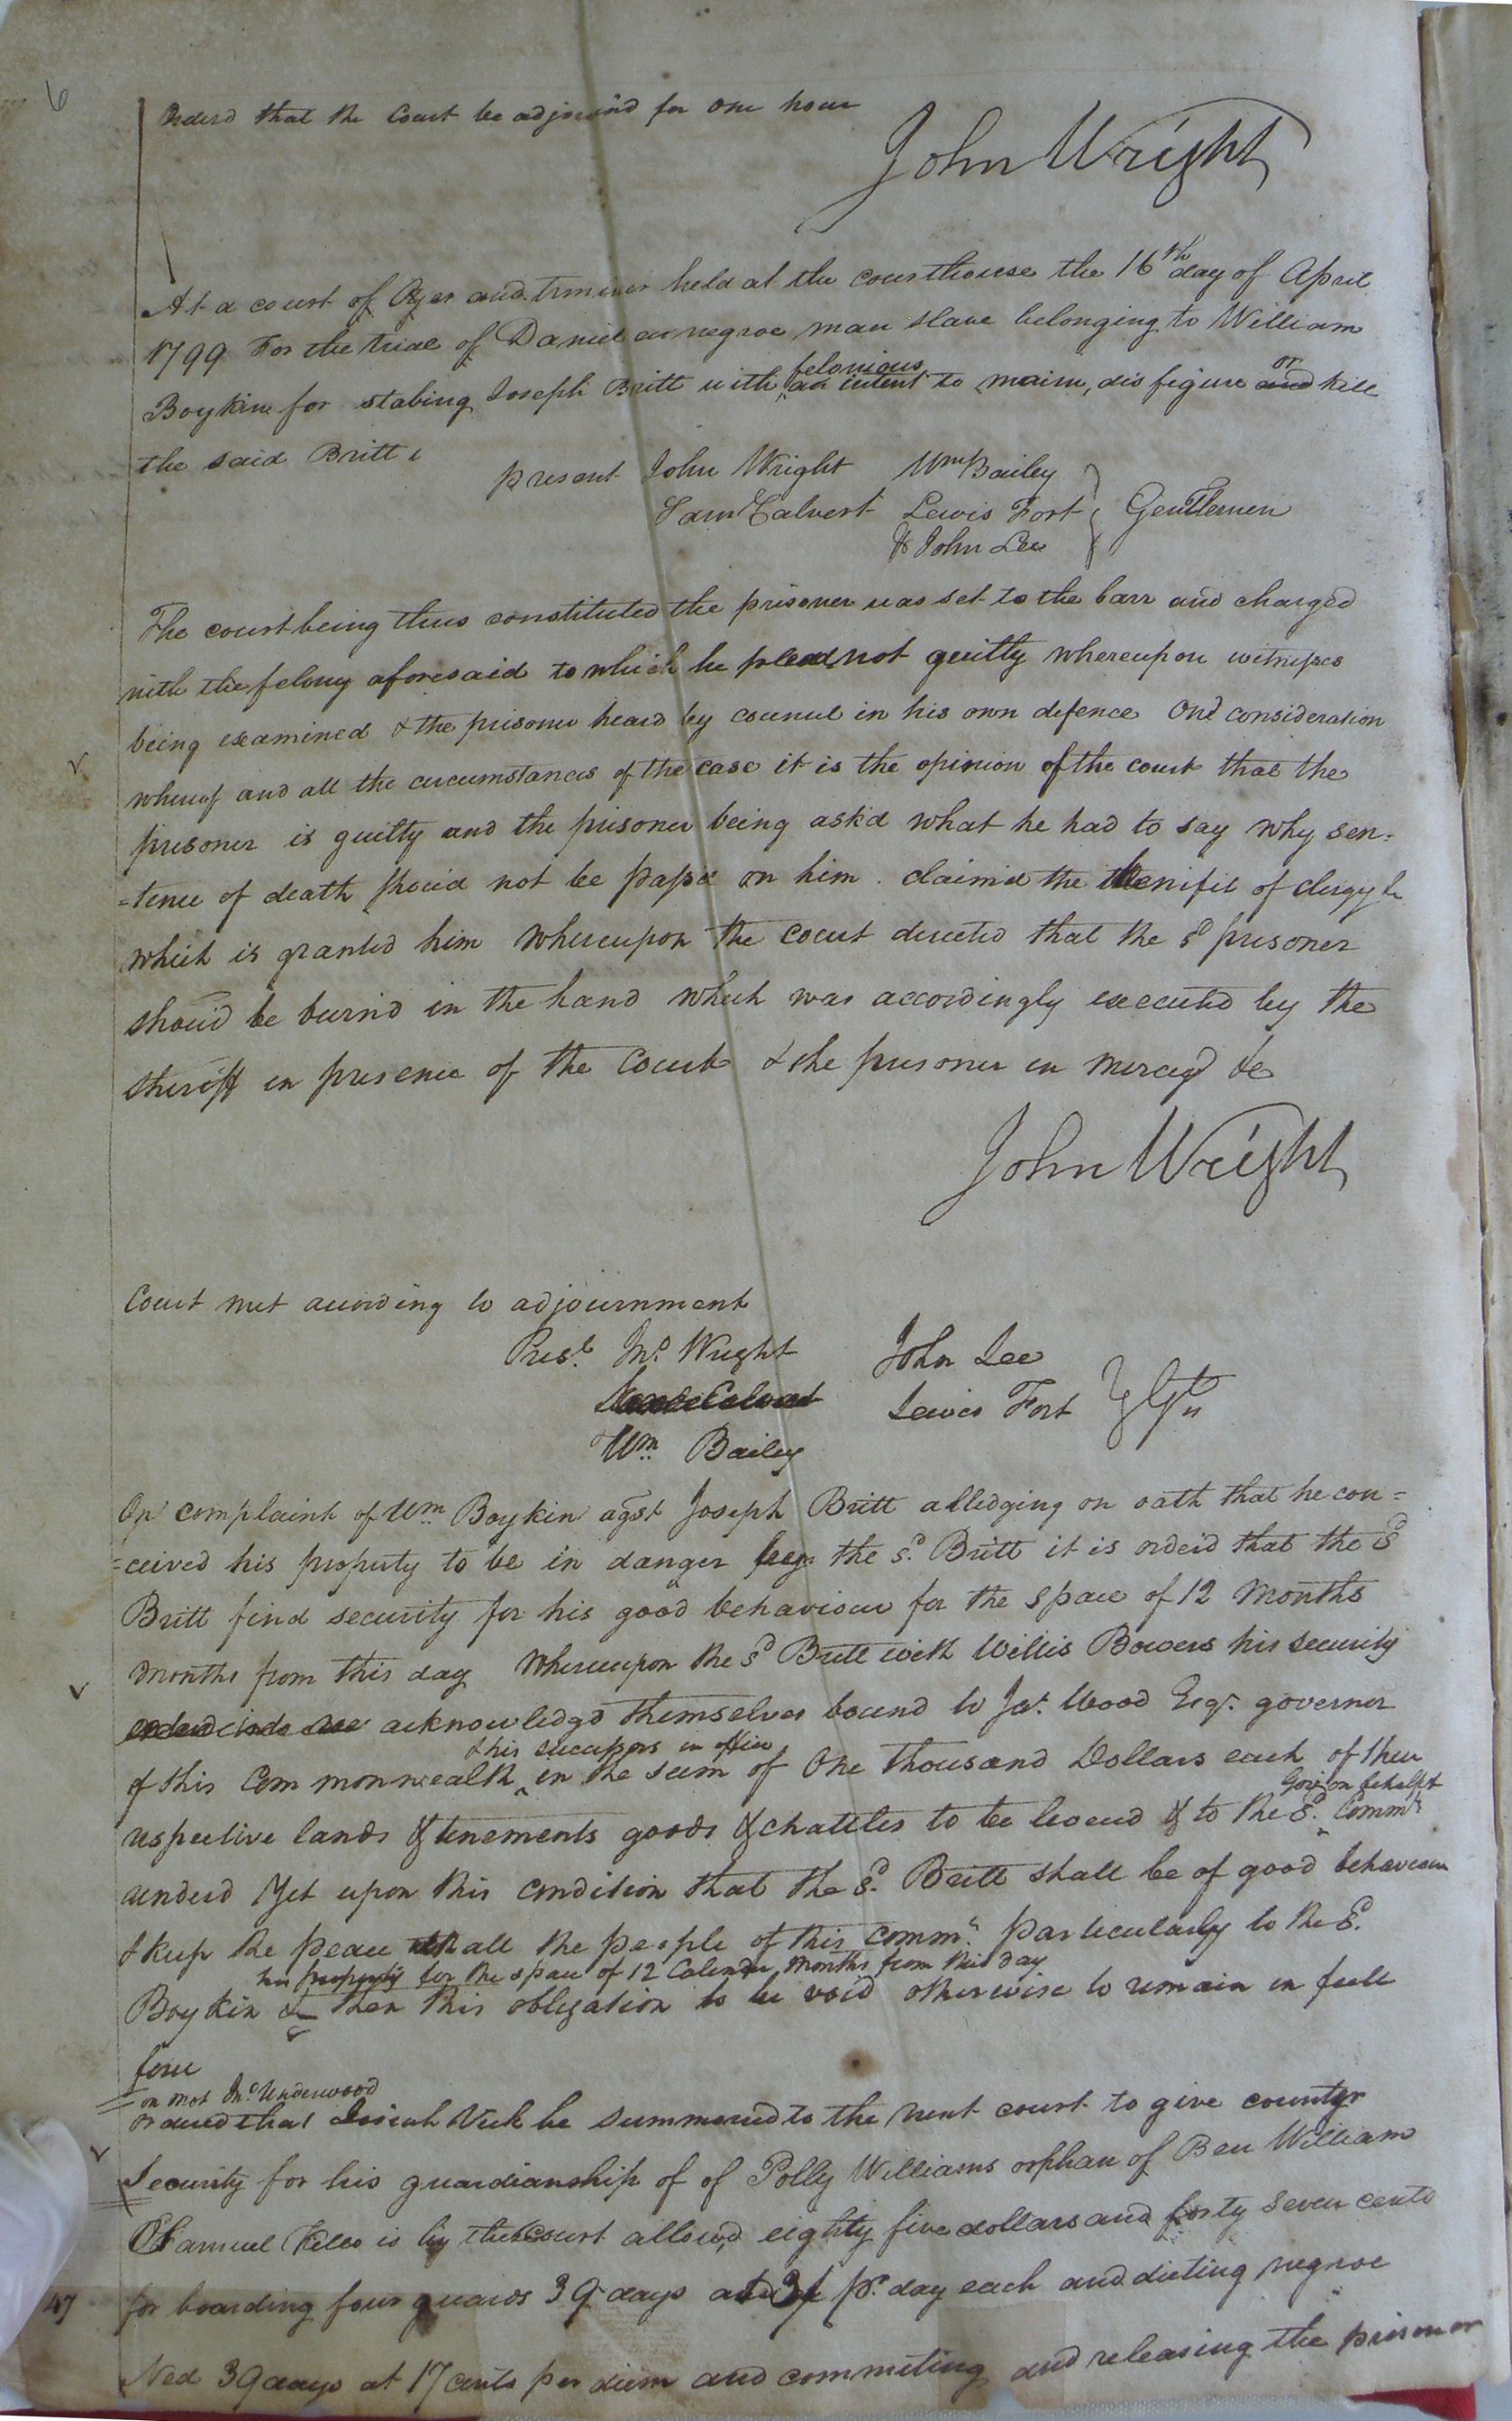 6
Orderd that the Court be adjournd for one hour
John Wright
At a court of Oyer and terminer held at the courthouse the 16th day of April
1799 For the trial of Daniel a negroe man slave belonging to William
felonious or
Boykin for stabing Joseph Britt with an intent to maim, disfigure and kill
the said Britt
present John Wright Wm Bailey
Sam Calvert Lewis Fort Gentlemen
& John Lee
The court being thus constituted the prisoner was set to the barr and charged
with the felony aforesaid to which he plead not guilty whereupon witnesses
being examined & the prisoner heard by councul in his own defence On consideration
whereof and all the circumstances of the case it is the opinion of the court that the
prisoner is guilty and the prisoner being ask'd what he had to say why sen=
=tence of death shou'd not be pass'd on him claim'd the benifit of clergy
which is granted him whereupon the court directed that the sd prisoner
shou'd be burn'd in the hand which was accordingly executed by the
sheriff in presence of the Court & the prisoner in mercy &c
John Wright
Court met according to adjournment
Prest. Jno. Wright John Lee
Lewis Fort Gtn
Wm. Bailey
On complaint of Wm. Boykin agst Joseph Britt alledging on oath that he con=
=ceived his property to be in danger from the sd. Britt it is order'd that the sd
Britt find security for his good behaviour for the space of 12 months
months from this day whereupon the sd Britt with Willis Bowers his security
acknowledgd themselves bound to Jas. Wood Esqr. governer
& his successors in office
of this Commonwealth in the sum of One thousand Dollars each of their
Govr on behalf of
respective lands & tenements goods & chattles to be levied & to the sd. Commth
renderd Yet upon this condition that the sd. Britt shall be of good behaviour
& keep the peace with all the people of this Commth. particularly to the sd.
his property for the space of 12 Calendr months from this day
Boykin & then this obligation to be void otherwise to remain in full
force
on mot Jno. Underwood
ordered that Josiah Vick be summoned to the next court to give counter
Security for his guardianship of of Polly Williams orphan of Ben Williams
Samuel Kello is by the court allow'd eighty five dollars and forty seven cents
47 for boarding four guards 39 days at 3/ pr. day each and dieting negroe
Ned 39 days at 17 cents per diem and commiting and releasing the prisoner